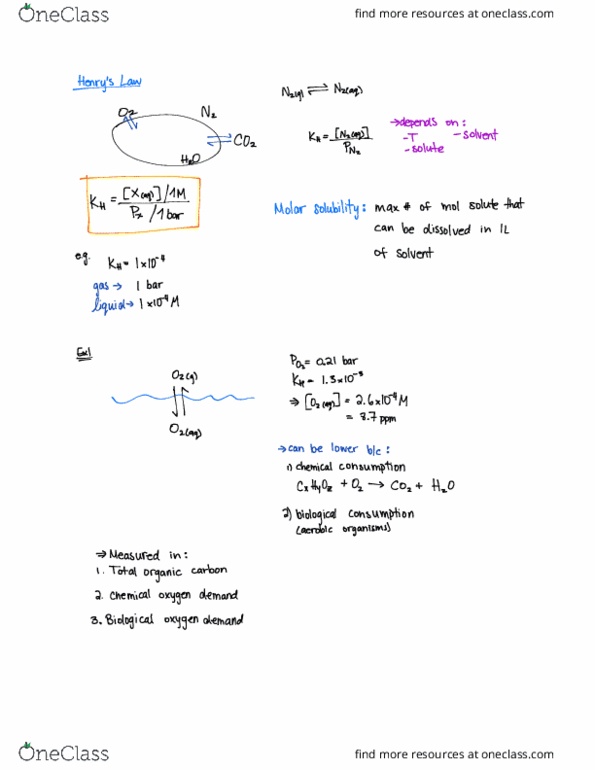 OneClass
find more resources at oneclass.com
Henry's Law
O₂
N₂
CO₂
H₂O
K_H = [X(aq)]/1M
Pₓ/1 bar
e.g. K_H = 1×10⁻⁴
gas → 1 bar
liquid → 1×10⁻⁴ M
N₂(g) ⇌ N₂(aq)
K_H = [N₂(aq)]
P_N₂
→ depends on:
-T -solvent
-solute
Molar solubility: max # of mol solute that
can be dissolved in 1L
of solvent
Ex1
O₂(g)
O₂(aq)
P_O₂ = 0.21 bar
K_H = 1.3×10⁻³
⇒ [O₂(aq)] = 2.6×10⁻⁴ M
= 8.7 ppm
→ can be lower b/c:
1) chemical consumption
CxHyOz + O₂ → CO₂ + H₂O
2) biological consumption
(aerobic organisms)
⇒ Measured in:
1. Total organic carbon
2. Chemical oxygen demand
3. Biological oxygen demand
OneClass
find more resources at oneclass.com